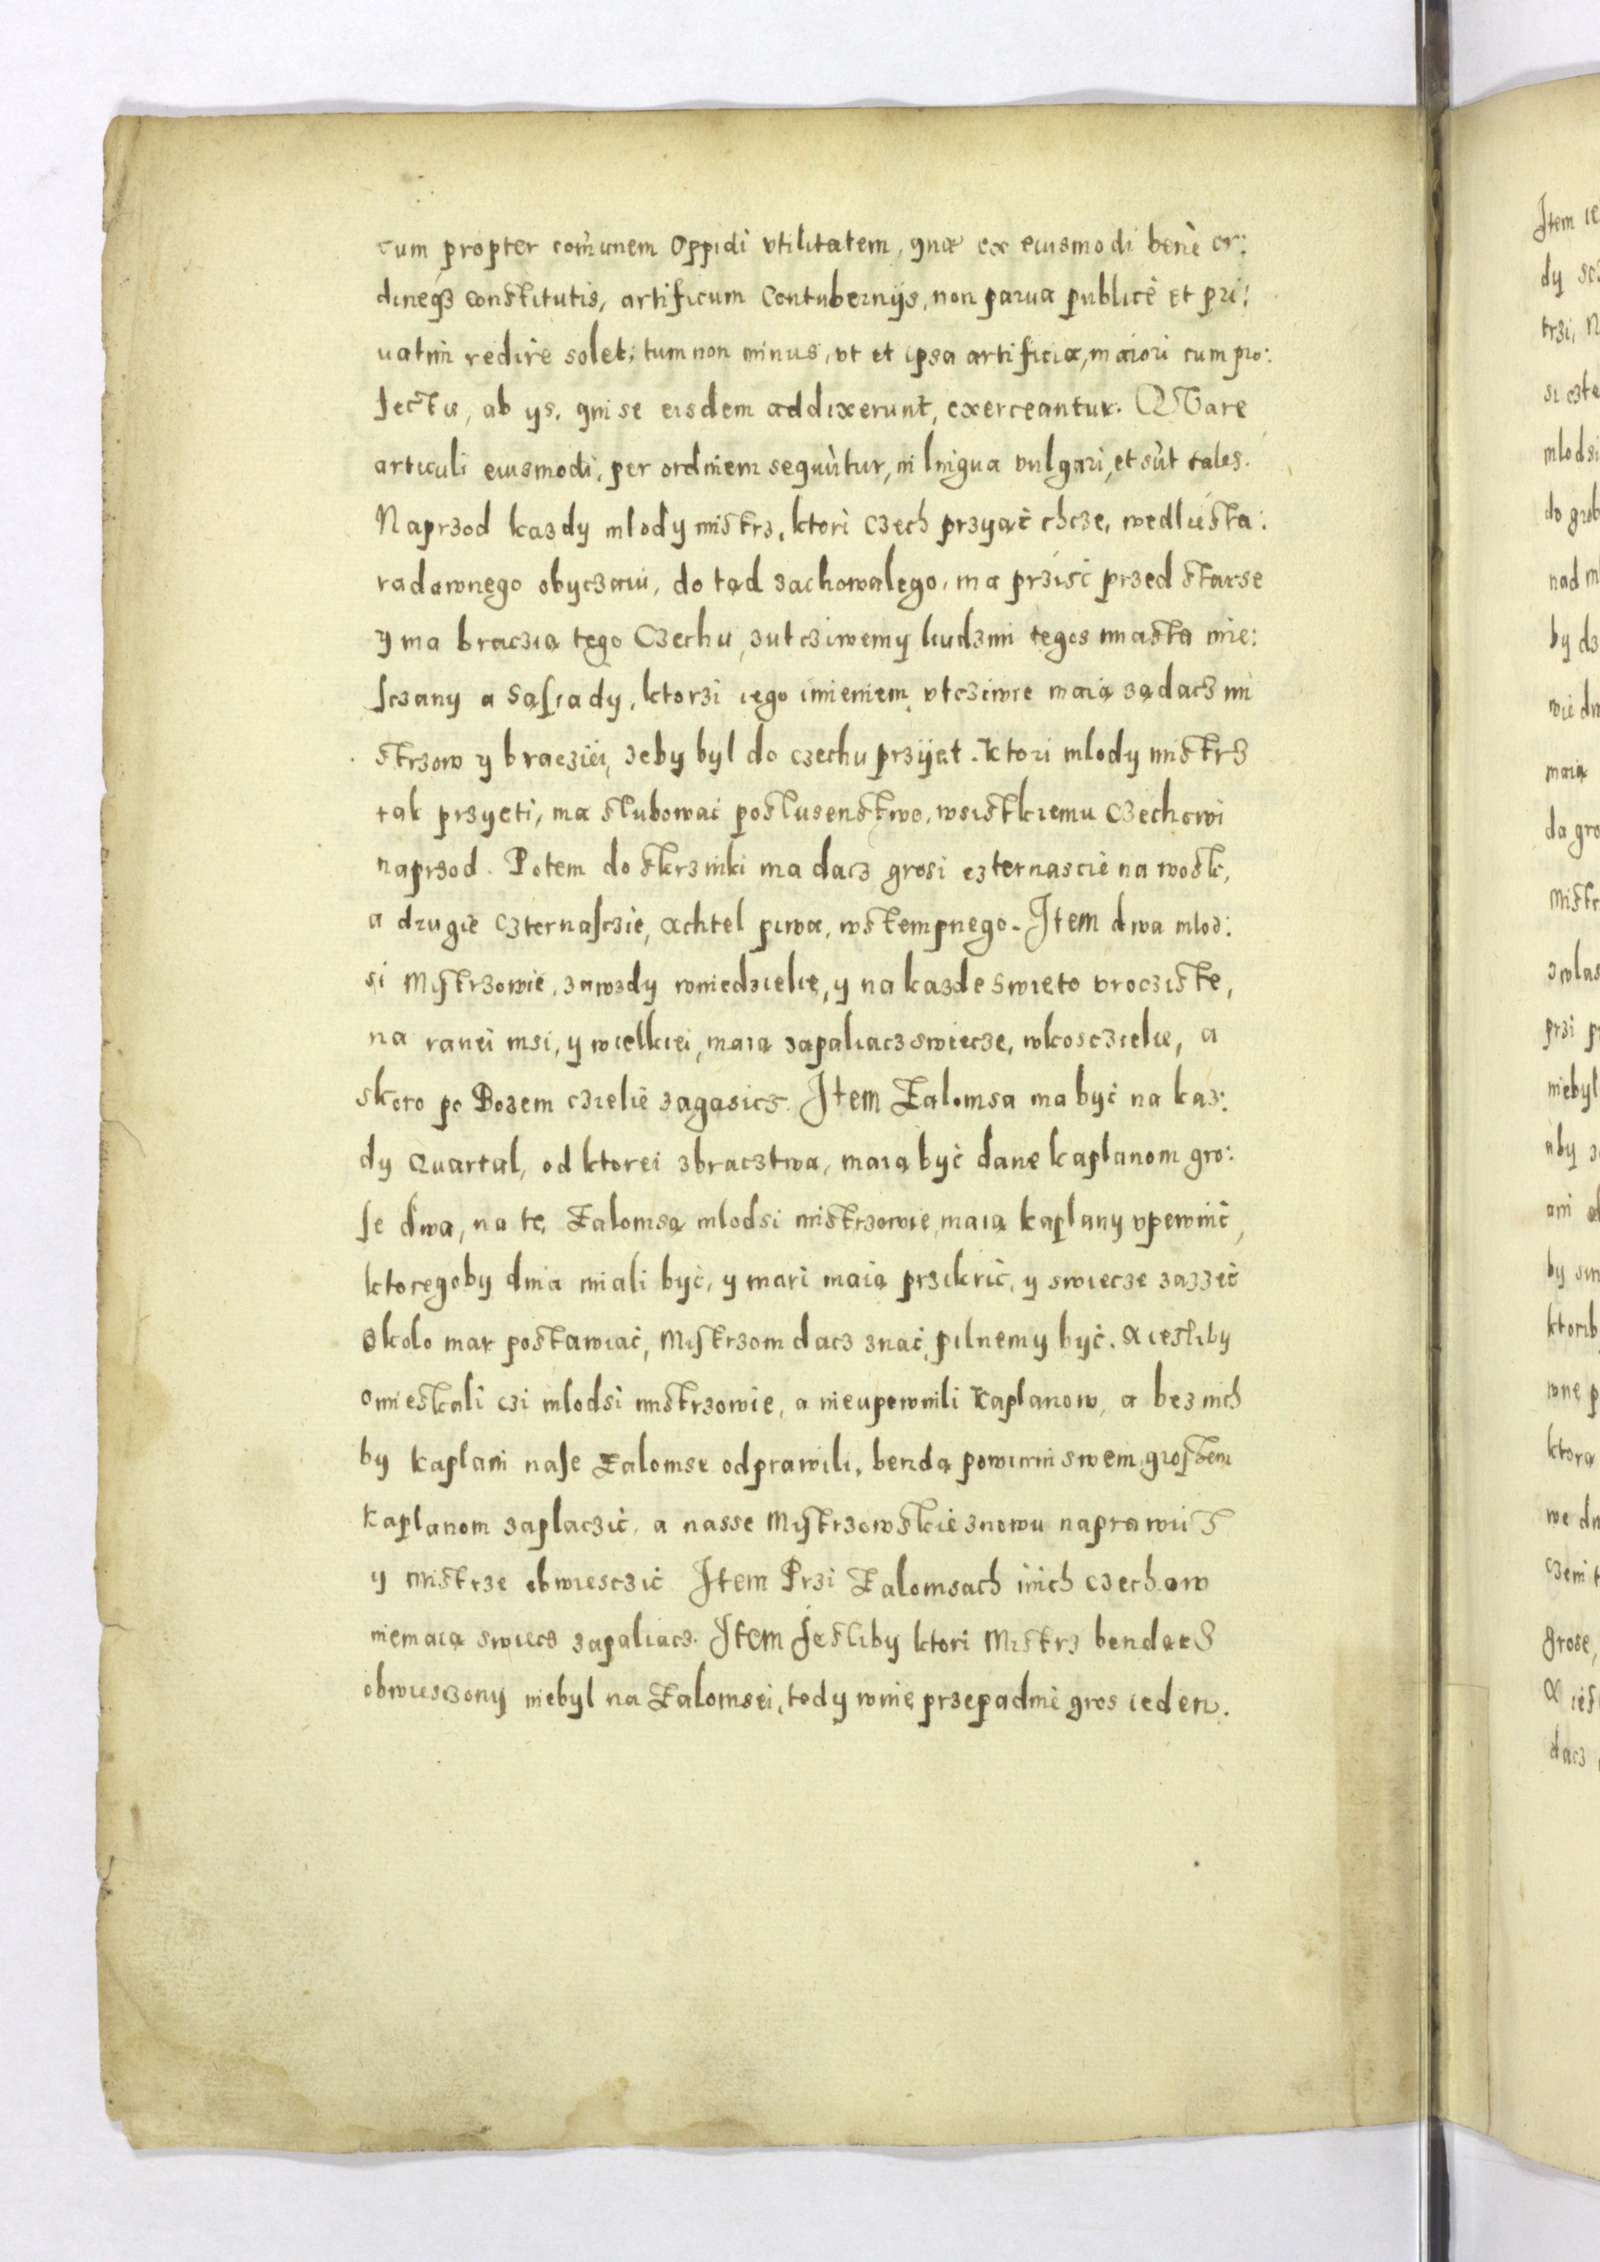 tum propter com̃unem Oppidi vtilitatem, quæ ex eiusmodi benè or:
dineq3 constitutis, artificum Contubernijs, non parua publicè et pri:
uatim redire solet; tum non minus, vt et ipsa artificia, maiori cum pro:
fectu, ab ys, qui se eisdem addixerunt, exerceantur. QVare
articuli eiusmodi, per ordinem sequũtur, in lingua vulgari, et sũt tales.
Naprzod kazdy mlody mistrz, ktori Czech przyąć chcze, wedlu sta:
radawnego obyczaiu, do tąd zachowalego, ma prziść przed starse
y ma braczią tego Czechu, zutcziwemy liudzmi tegos miasta mie:
sczany a Sąsiady, ktorzi iego imieniem, vtcziwie maią ządacz mi
strzow y braeziei, zeby byl do czechu przÿet. Ktori mlody mistrz
tak przyeti, ma slubować poslusenstwo, wsistkiemu Czechowi
naprzod. Potem do skrzinki ma dacz grosi czternascie na wosk,
a drugie czternasczie, achtel piwa, wstempnego. Item dwa mlod:
si Mystrzowie, zawzdy wniedzielie, y na kazde swieto vrocziste,
na ranei msi, y wielkiei, maią zapaliacz swiecze, wkosczielie, a
skoro po Bozem czielie zagasicz. Item Zalomsa ma być na kaz:
dy Quartal, od ktorei zbracztwa, maią być dane kaplanom gro:
se dwa, na te, Zalomsą mlodsi mistrzowie, maią kaplany vpewnić,
ktoregoby dnia miali być, y mari maią przikrić, y swiecze zazzeć
okolo mar postawiać, Mistrzom dacz znać, pilnemy być. A iesliby
omieskali czi mlodsi mistrzowie, a nieupewnili Kaplanow, a bez nich
by kaplani nase Zalomse odprawili, bendą powinni swem grostem
kaplanom zaplaczić, a nasse Mystrzowskie znowu naprawicz
y mistrze obwiesczić Item Przi Zalomsach inich czechow
niemaią swiecz zapaliacz. Item Jesliby ktori Mistrz bendącz
obwiesczony niebyl na Zalomsei, tedy winie przepadnie gros ieden.